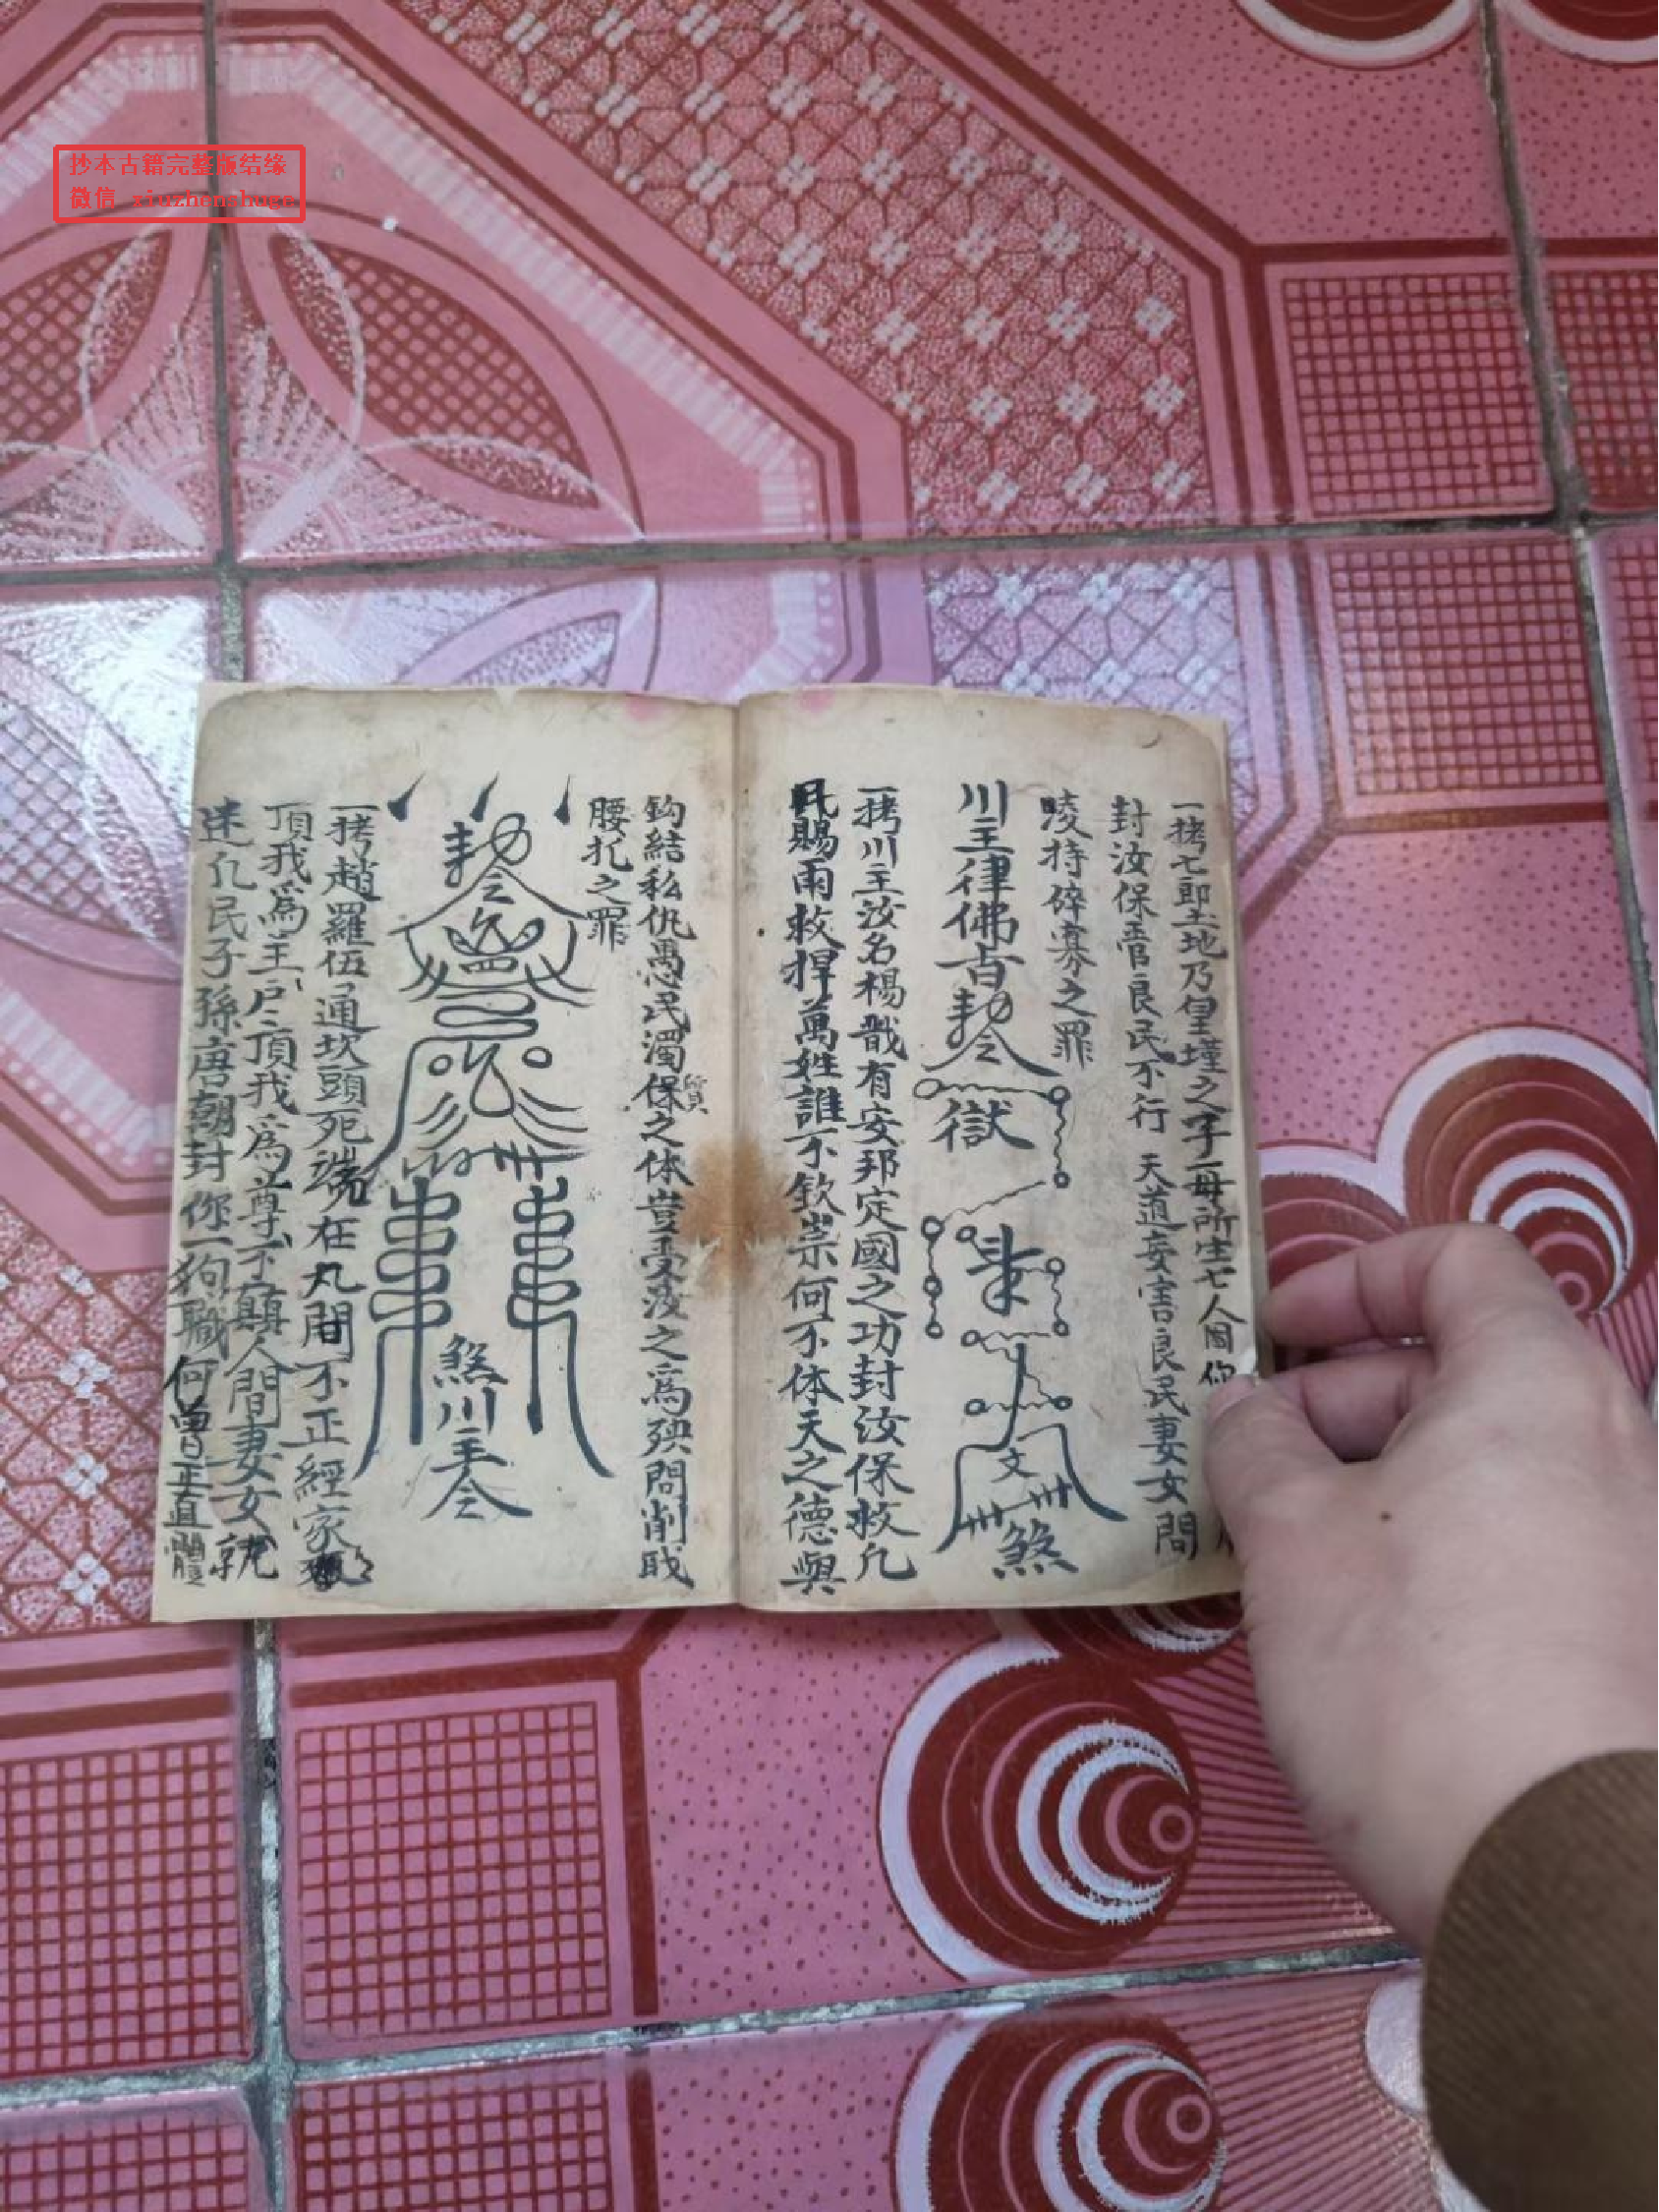 抄本古籍完整版结缘
微信 xiuzhenshuge
一拷七郎土地乃皇墐之子一母所生七人因你
封汝保管良民不行 天道妄害良民妻女問
凌持碎寡之罪
川主律佛古勅令
獄
文
煞
一拷川主汝名楊戩有安邦定國之功封汝保救凡
民賜雨救捍萬姓誰不欽崇何不体天之德與
鈎結私仇愚民濁保之体豈受汝之為殃問削戝
質
腰扎之罪
勅令
煞川主令
一拷趙羅伍通坎頭死端在丸間不正經家
頂我為主戶頂我為尊不顛人間妻女就
迷凢民子孫唐朝封你一狗職何曾正直體